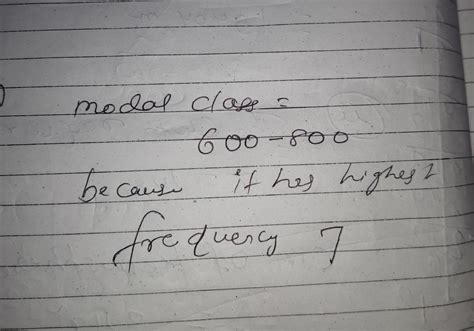 modal class =
600-800
because it has highest
frequency 7